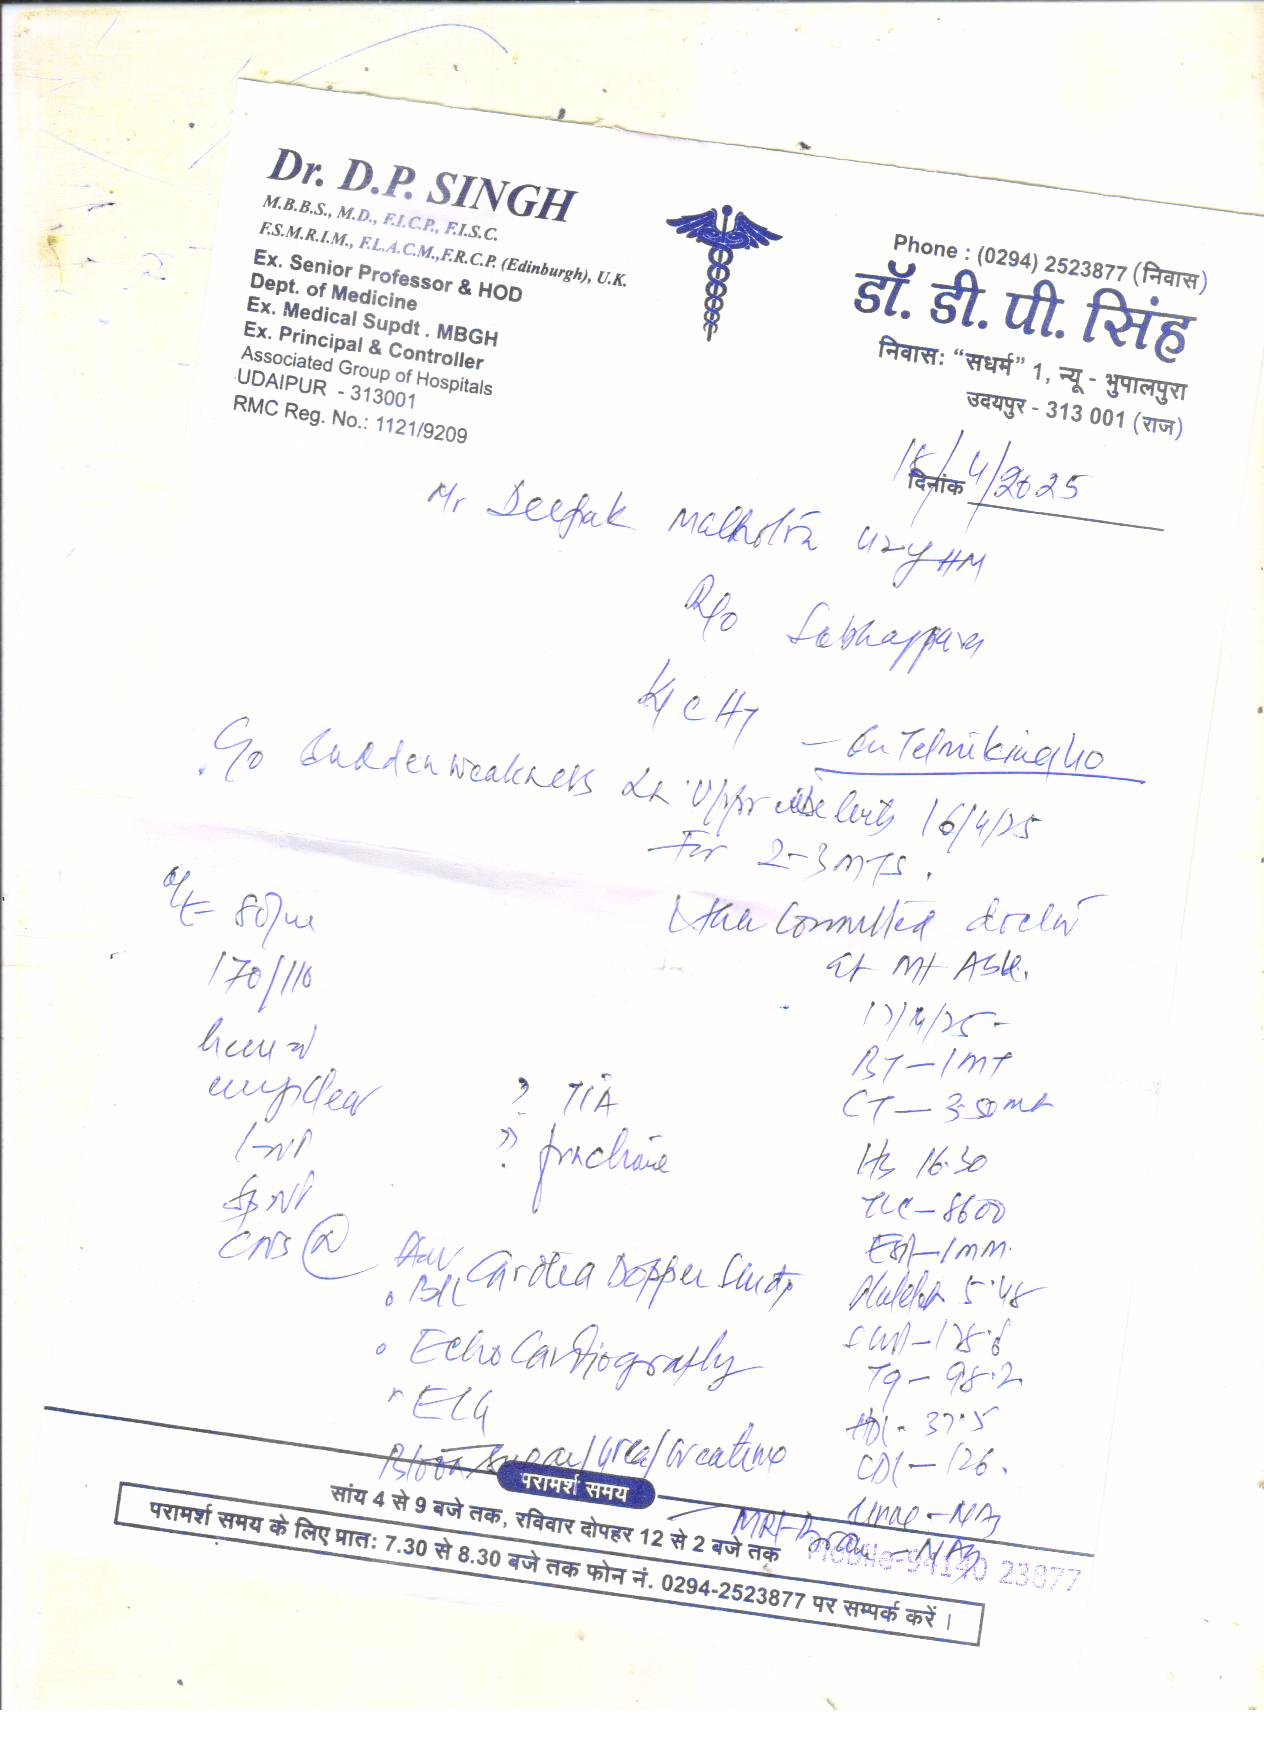 Dr. D.P. SINGH
M.B.B.S., M.D., F.I.C.P., F.I.S.C.
F.S.M.R.I.M., F.L.A.C.M.,F.R.C.P. (Edinburgh), U.K.
Ex. Senior Professor & HOD
Dept. of Medicine
Ex. Medical Supdt . MBGH
Ex. Principal & Controller
Associated Group of Hospitals
UDAIPUR - 313001
RMC Reg. No.: 1121/9209
Phone : (0294) 2523877 (निवास)
डॉ. डी. पी. सिंह
निवास: “सधर्म” 1, न्यू - भुपालपुरा
उदयपुर - 313 001 (राज)
दिनांक 18/4/2025
Mr Deepak Malhotra 42y
R/o
K/c HT
- On Telmikind 40
C/o Sudden weakness in 16/4/25
For 2-3 MTS.
doctor
at Mt Abu.
O/E 80/m
170/110
clear
CNS (N)
? TIA
?
17/4/25 -
BT - 1 MT
CT - 3.50 mt
Hb 16.30
TLC - 8600
ESR - 1 mm.
Platelet 5.48
- 178.6
Tg - 98.2
HDL - 37.5
- 126.
Urine - NAD
MRI - Brain - NAD
Adv
B/L Carotid Doppler Study
Echo Cardiography
ECG
Blood Sugar/Urea/Creatinine
परामर्श समय
सांय 4 से 9 बजे तक, रविवार दोपहर 12 से 2 बजे तक
परामर्श समय के लिए प्रात: 7.30 से 8.30 बजे तक फोन नं. 0294-2523877 पर सम्पर्क करें ।
Mobile-94140 23877